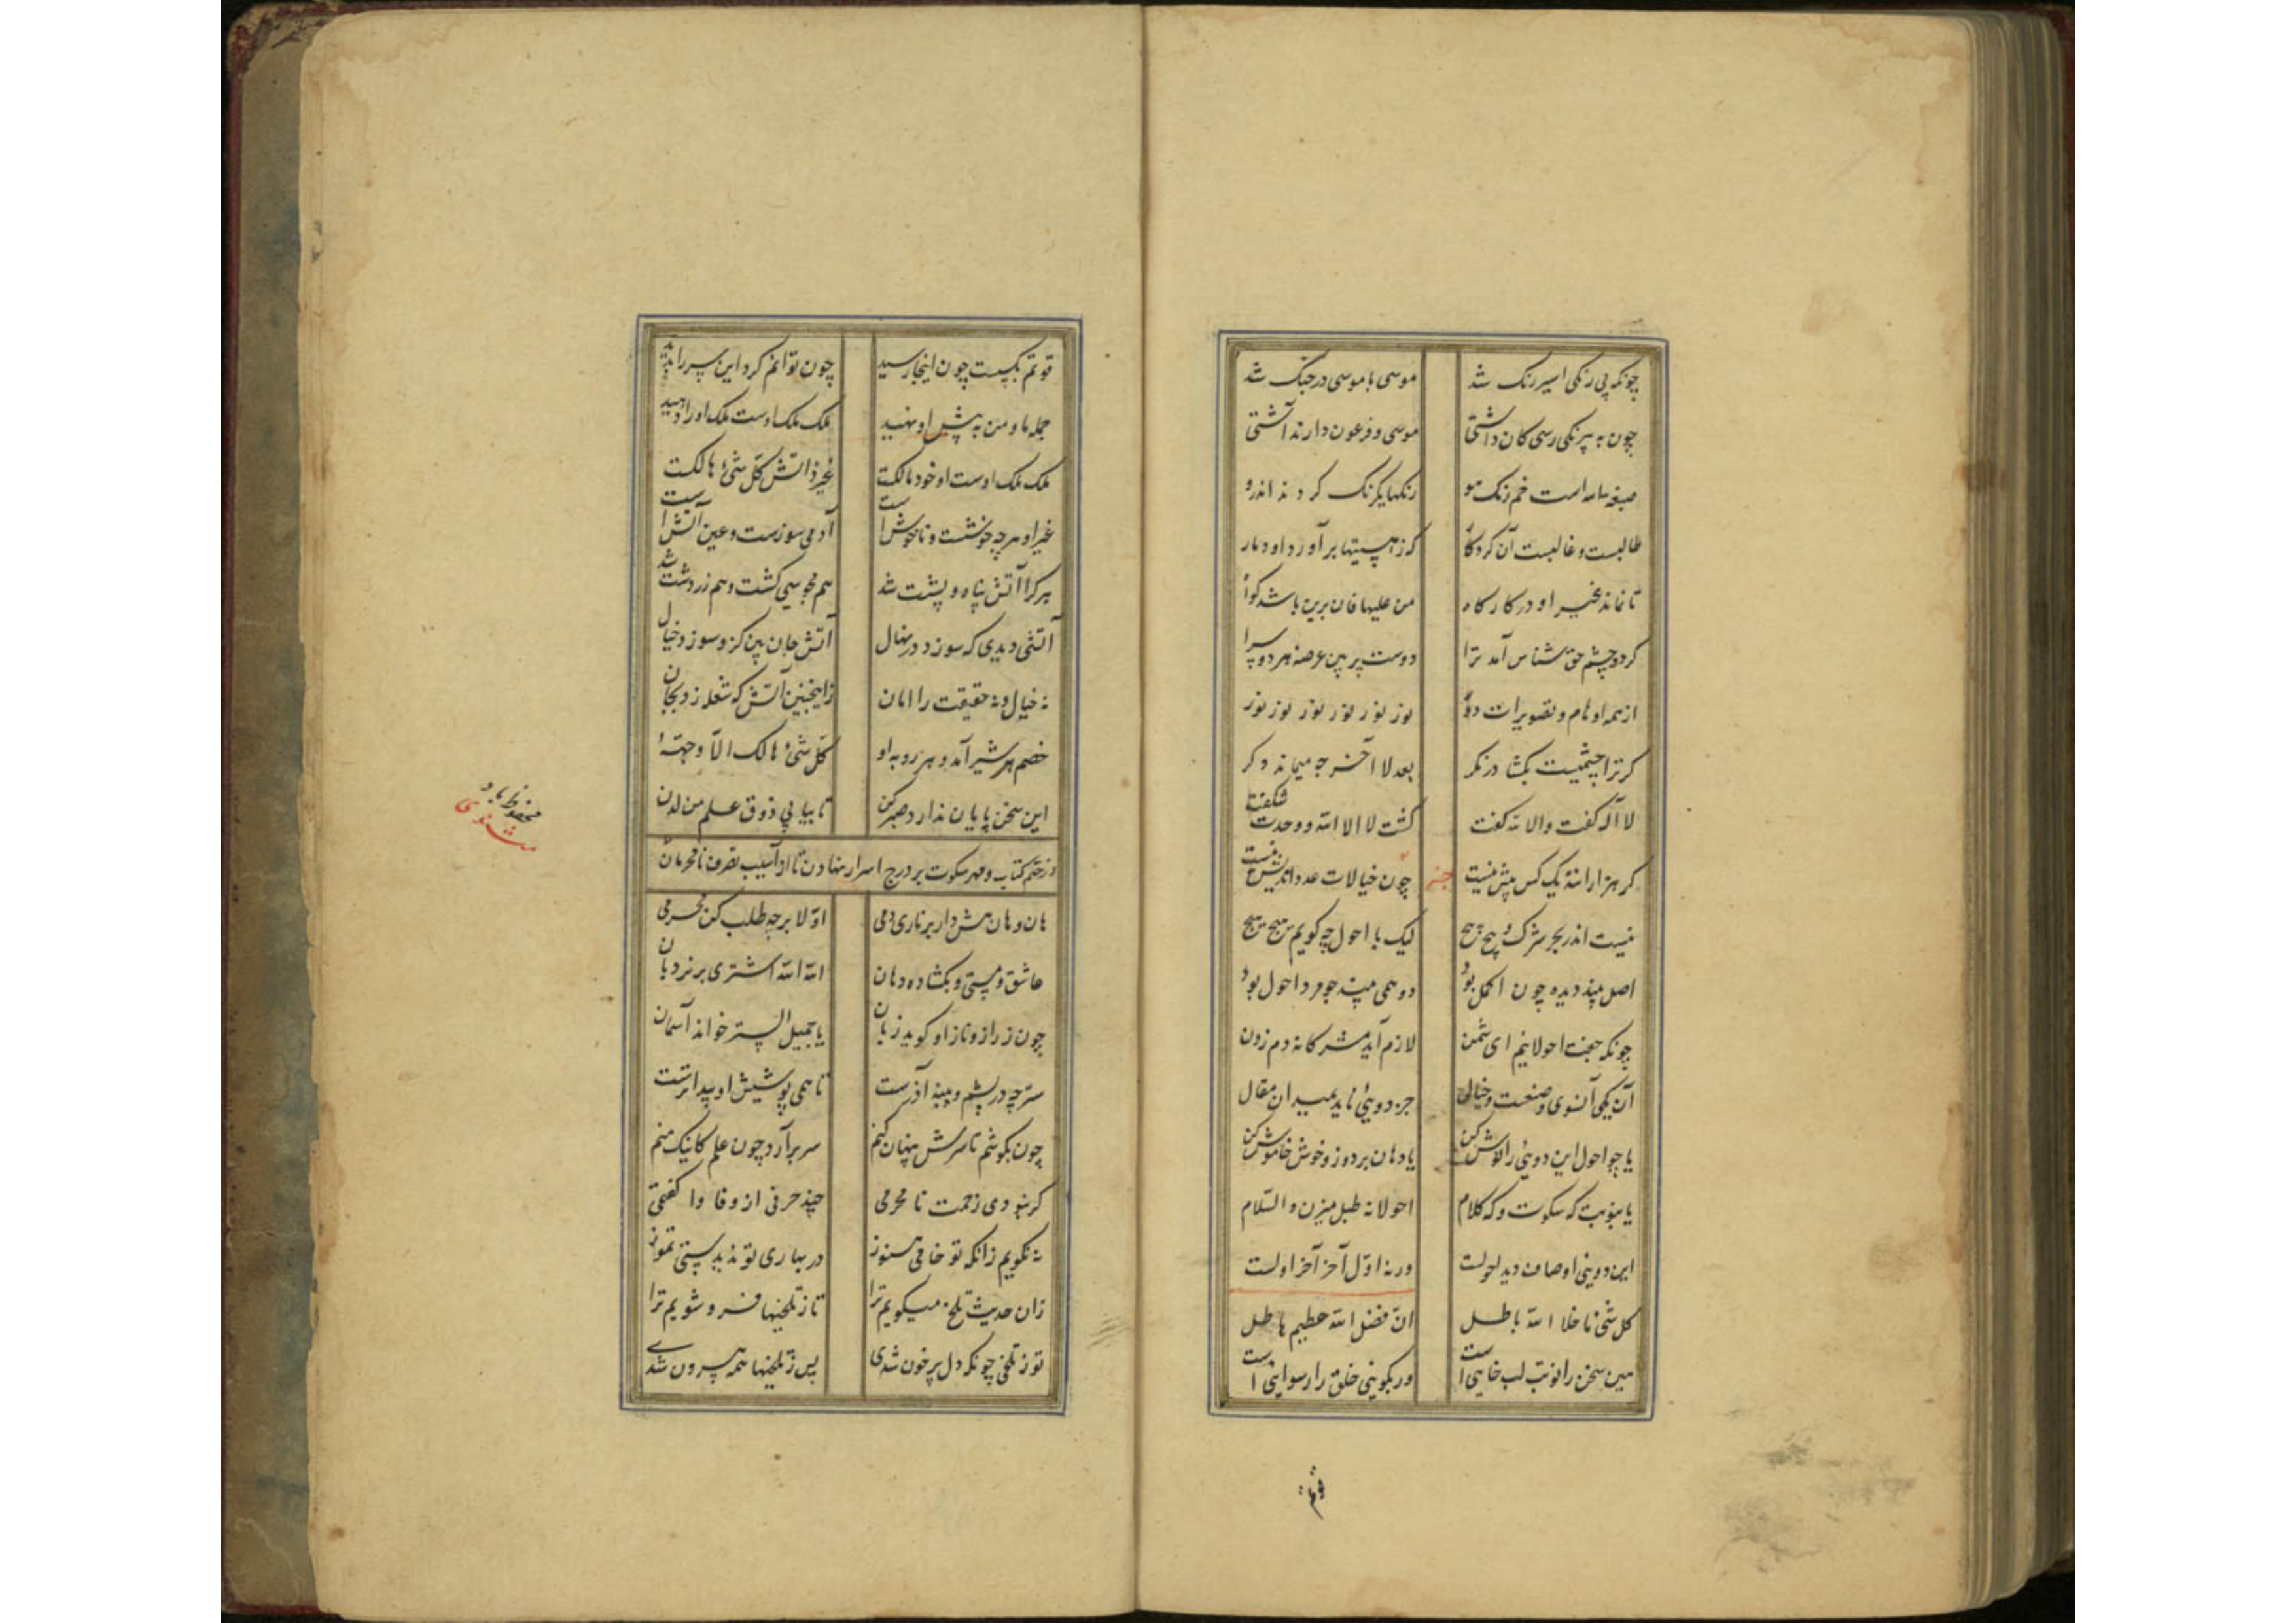 چونکه بی رنکی اسیر رنک شد موسی با موسی در جنک شد
چون به بیرنکی رسی کان داشتی موسی و فرعون دارند آشتی
صبغة الله است خم رنک هو رنکها یکرنک کردند اندرو
طالبست و غالبست آن کردکار که ز هستیها برآورد او دمار
تا نماند غیر او در کارگاه من علیها فان برین باشد کواه
کر دو چشم حق شناس آمد ترا دوست پر بین عرصه هر دو سرا
از همه اوهام و تصویرات دور نور نور نور نور نور نور
کر ترا چشمیست بکشا در نکر بعد لا آخر چه میماند دکر
لا اله کفت و الا لله کفت کشت لا الا الله و وحدت شکفت
کر هزارانند یک کس بیش نیست جز چون خیالات عدد اندیش نیست
نیست اندر بحر شرک و پیچ پیچ لیک با احول چه کویم هیچ هیچ
اصل بیند دیده چون اکمل بود دو همی بیند چو مرد احول بود
چونکه جفت احولانیم ای شمن لازم آید مشرکانه دم زدن
آن یکی آنسوی وصفست و خیالی جز دویی ناید بمیدان مقال
یا چو احول این دویی را نوش کن یا دهان بردوز و خوش خاموش کن
یا بنوبت که سکوت و که کلام احولانه طبل میزن والسلام
این دویی اوصاف دید احولست ورنه اول آخر آخر اولست
کل شئ ما خلا الله باطل ان فضل الله عظیم هاطل
هین سخن را نوبت لب خایی است ور بکویی خلق را رسوایی است
قوتم
قوتم بکسست چون اینجا رسید چون توانم کرد این سر را پدید
جمله ما و من به پیش او نهید ملک ملک اوست ملک او را دهید
ملک ملک اوست او خود مالکست غیر ذاتش کل شئ هالکست
غیر او هر چه خوشست و ناخوش است آدمی سوزست و عین آتش است
هر کرا آتش پناه و پشت شد هم مجوسی کشت و هم زردشت شد
آتشی دیدی که سوزد در نهال آتش جان بین کزو سوزد خیال
نه خیال و نه حقیقت را امان زاینچنین آتش که شعله زد بجان
خصم هر شیر آمد و هر روبه او کل شئ هالک الا وجهه
این سخن پایان ندارد صبر کن تا بیابی ذوق علم من لدن
در ختم کتاب و مهر سکوت بر درج اسرار نهادن تا از آسیب تصرف نامحرمان
هان و هان هش دار برناری دمی اولا برجه طلب کن محرمی
عاشق و مستی و بکشاده دهان الله الله اشتری بر نردبان
چون ز راز و ناز او کوید زبان یا جمیل الستر خواند آسمان
ستر چه در پشم و پنبه آذرست تا همی پوشیش او پیداترست
چون بکوشم تا سرش پنهان کنم سر برآرد چون علم کاینک منم
کر نبودی زحمت نامحرمی چند حرفی از وفا وا کفتمی
نه نکویم زانکه تو خامی هنوز در بهاری تو ندیدستی تموز
زان حدیث تلخ میکویم ترا تا ز تلخیها فرو شویم ترا
تو ز تلخی چونکه دل پر خون شدی پس ز تلخیها همه بیرون شدی
محفوظ باد
مثنوی